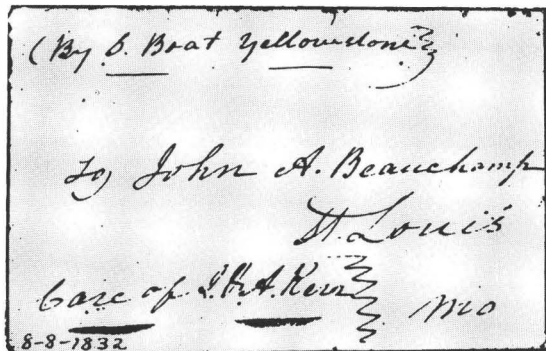 (By S. Boat Yellowstone)
To John A. Beauchamp
St. Louis
Care of J. & A. Kerr
Mo
8-8-1832